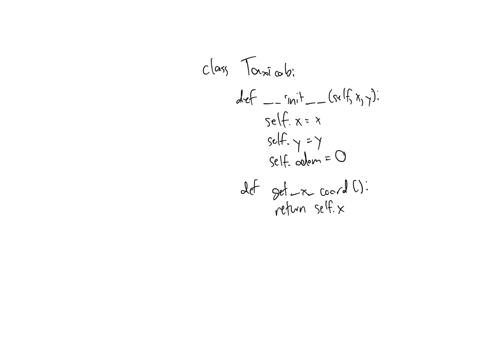 class Taxicab:
def __init__(self, x, y):
self.x = x
self.y = y
self.odom = 0
def get_x_coord():
return self.x